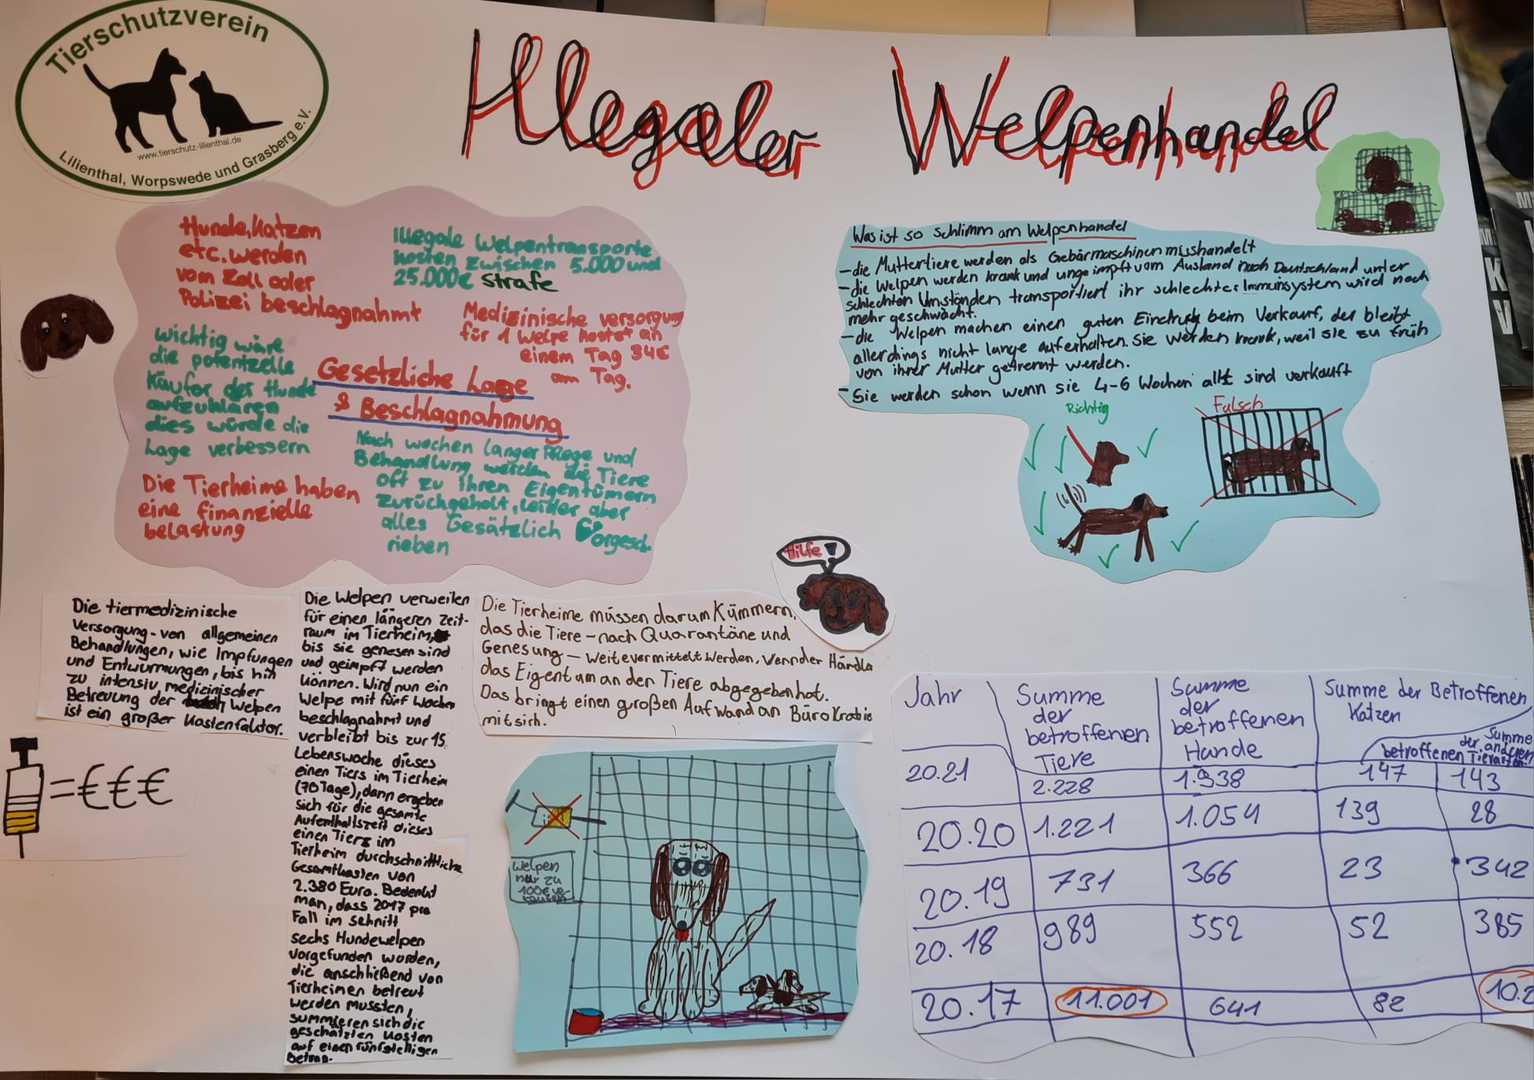 Tierschutzverein
www.tierschutz-lilienthal.de
Lilienthal, Worpswede und Grasberg e.V.
Illegaler Welpenhandel
Hunde, Katzen
etc. werden
vom Zoll oder
Polizei beschlagnahmt
Illegale Welpentransporte
kosten zwischen 5.000 und
25.000€ Strafe
Medizinische versorgung
für 1 Welpe kostet an
einem Tag 34€
am Tag.
wichtig wäre
die potenzelle
Käufer der Hunde
aufzuklären
dies würde die
Lage verbessern
Gesetzliche Lage
& Beschlagnahmung
Die Tierheime haben
eine finanzielle
belastung
Nach wochen langer Pflege und
Behandlung werden die Tiere
oft zu ihren Eigentümern
zurückgeholt, leider aber
alles Gesätzlich Vorgesch-
rieben
Was ist so schlimm am Welpenhandel
- die Muttertiere werden als Gebärmaschinen mishandelt
- die Welpen werden krank und ungeimpft vom Ausland nach Deutschland unter
schlechten Umständen transportiert ihr schlechtes Immunsystem wird noch
mehr geschwächt.
- die Welpen machen einen guten Eindruck beim Verkauf, der bleibt
allerdings nicht lange auferhalten. Sie werden krank, weil sie zu früh
von ihrer Mutter getrennt werden.
- Sie werden schon wenn sie 4-6 Wochen alt sind verkauft
Richtig
Falsch
Hilfe!
Die tiermedizinische
Versorgung - von allgemeinen
Behandlungen, wie Impfungen
und Entwurmungen, bis hin
zu intensiv medizinischer
Betreuung der Welpen
ist ein großer Kostenfaktor.
=€€€
Die Welpen verweilen
für einen längeren Zeit-
raum im Tierheim,
bis sie genesen sind
und geimpft werden
können. Wird nun ein
Welpe mit fünf Wochen
beschlagnahmt und
verbleibt bis zur 15.
Lebenswoche dieses
einen Tiers im Tierheim
(70 Tage), dann ergeben
sich für die gesamte
Aufenthaltszeit dieses
einen Tiers im
Tierheim durchschnittliche
Gesamtkosten von
2.380 Euro. Bedenkt
man, dass 2017 pro
Fall im Schnitt
sechs Hundewelpen
vorgefunden worden,
die anschließend von
Tierheimen betreut
werden mussten,
summieren sich die
geschätzten Kosten
auf einen fünfstelligen
Betrag.
Die Tierheime müssen darum Kümmern,
das die Tiere - nach Quarantäne und
Genesung - weitervermittelt werden, wenn der Händler
das Eigentum an der Tiere abgegeben hat.
Das bringt einen großen Aufwand an Bürokratie
mit sich.
Welpen
nur zu
100€ ver-
kaufen
Jahr Summe der betroffenen Tiere Summe der betroffenen Hunde Summe der Betroffenen Katzen Summe der anderen betroffenen Tierarten
20.21 2.228 1.938 147 143
20.20 1.221 1.054 139 28
20.19 731 366 23 342
20.18 989 552 52 385
20.17 11.001 641 82 10.2